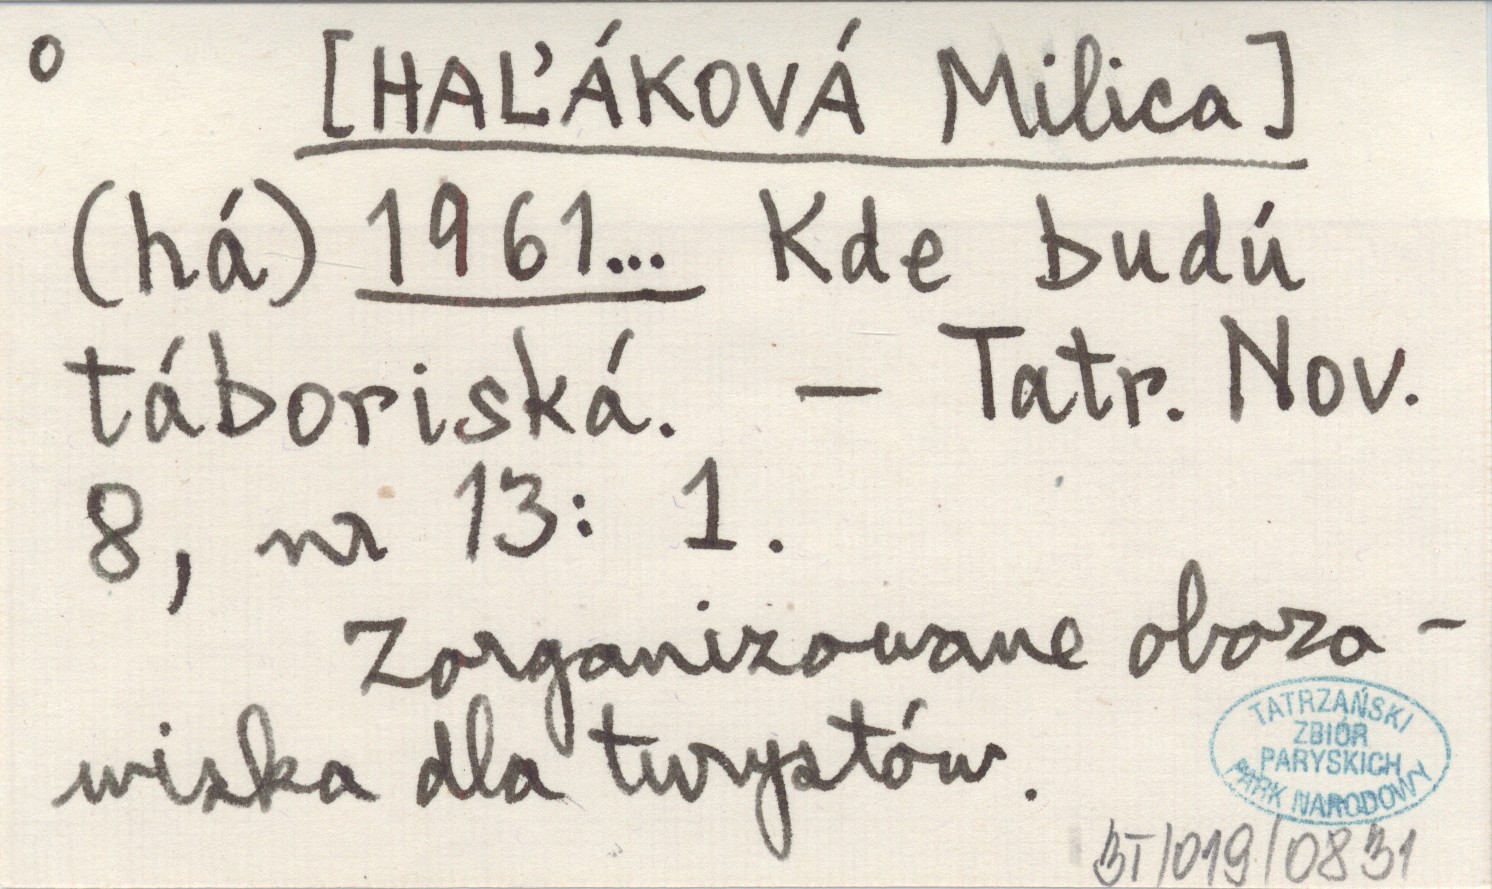 o [HAĽÁKOVÁ Milica]
(há) 1961... Kde budú
táboriská. — Tatr. Nov.
8, nr 13: 1.
Zorganizowane obozo-
wiska dla turystów.
TATRZAŃSKI
ZBIÓR
PARYSKICH
PARK NARODOWY
BT/019/0831